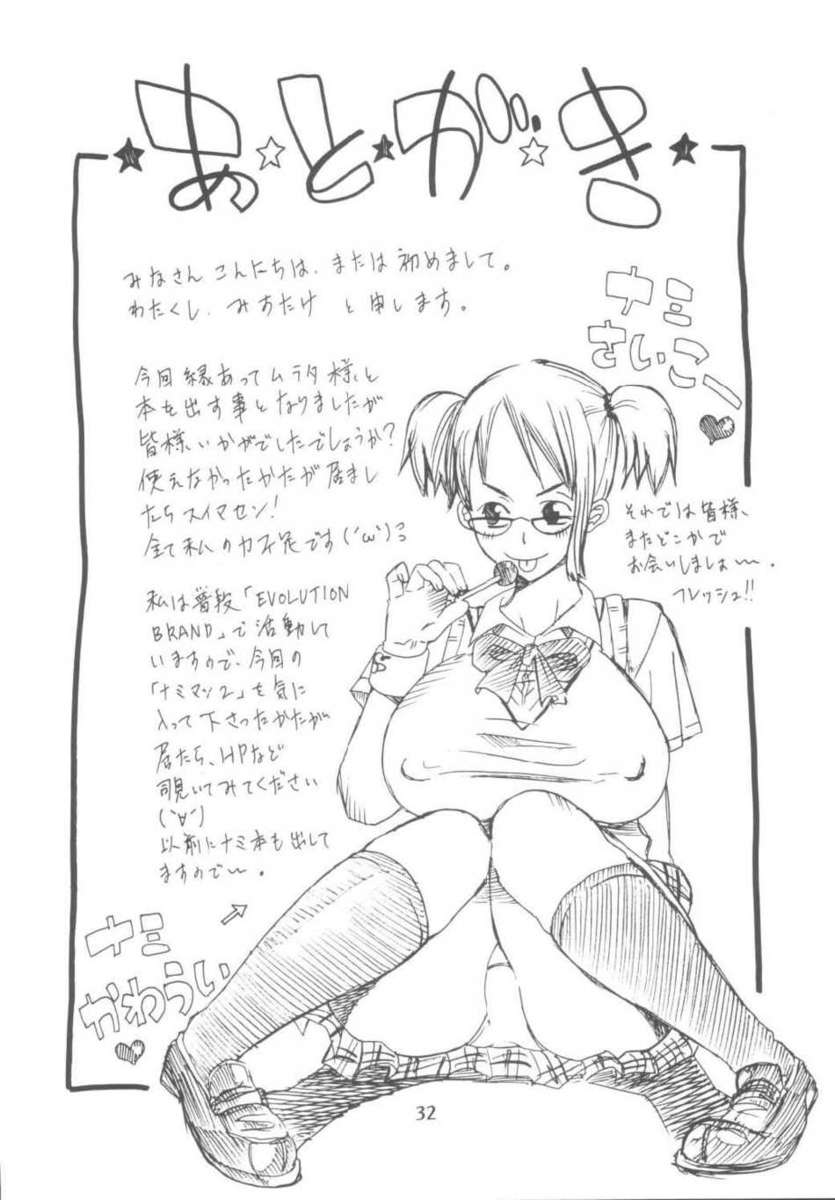 あとがき
みなさん こんにちは、または初めまして。
わたくし、みすたけ と申します。
今回縁あってムラタ様と
本を出す事となりましたが
皆様いかがでしたでしょうか?
使えなかったかたが居まし
たらスイマセン!
全て私のカ不足です(´ω`)
私は普段「EVOLUTION
BRAND」で活動して
いますので、今回の
「ナミマン2」を気に
入って下さったかたが
居たら、HPなど
覗いてみてください
(´∀`)
以前にナミ本も出して
ますので〜。
ナミ
さいこー
それでは皆様、
またどこかで
お会いしましょ〜。
フレッシュ!!
ナミ
かわうい
32